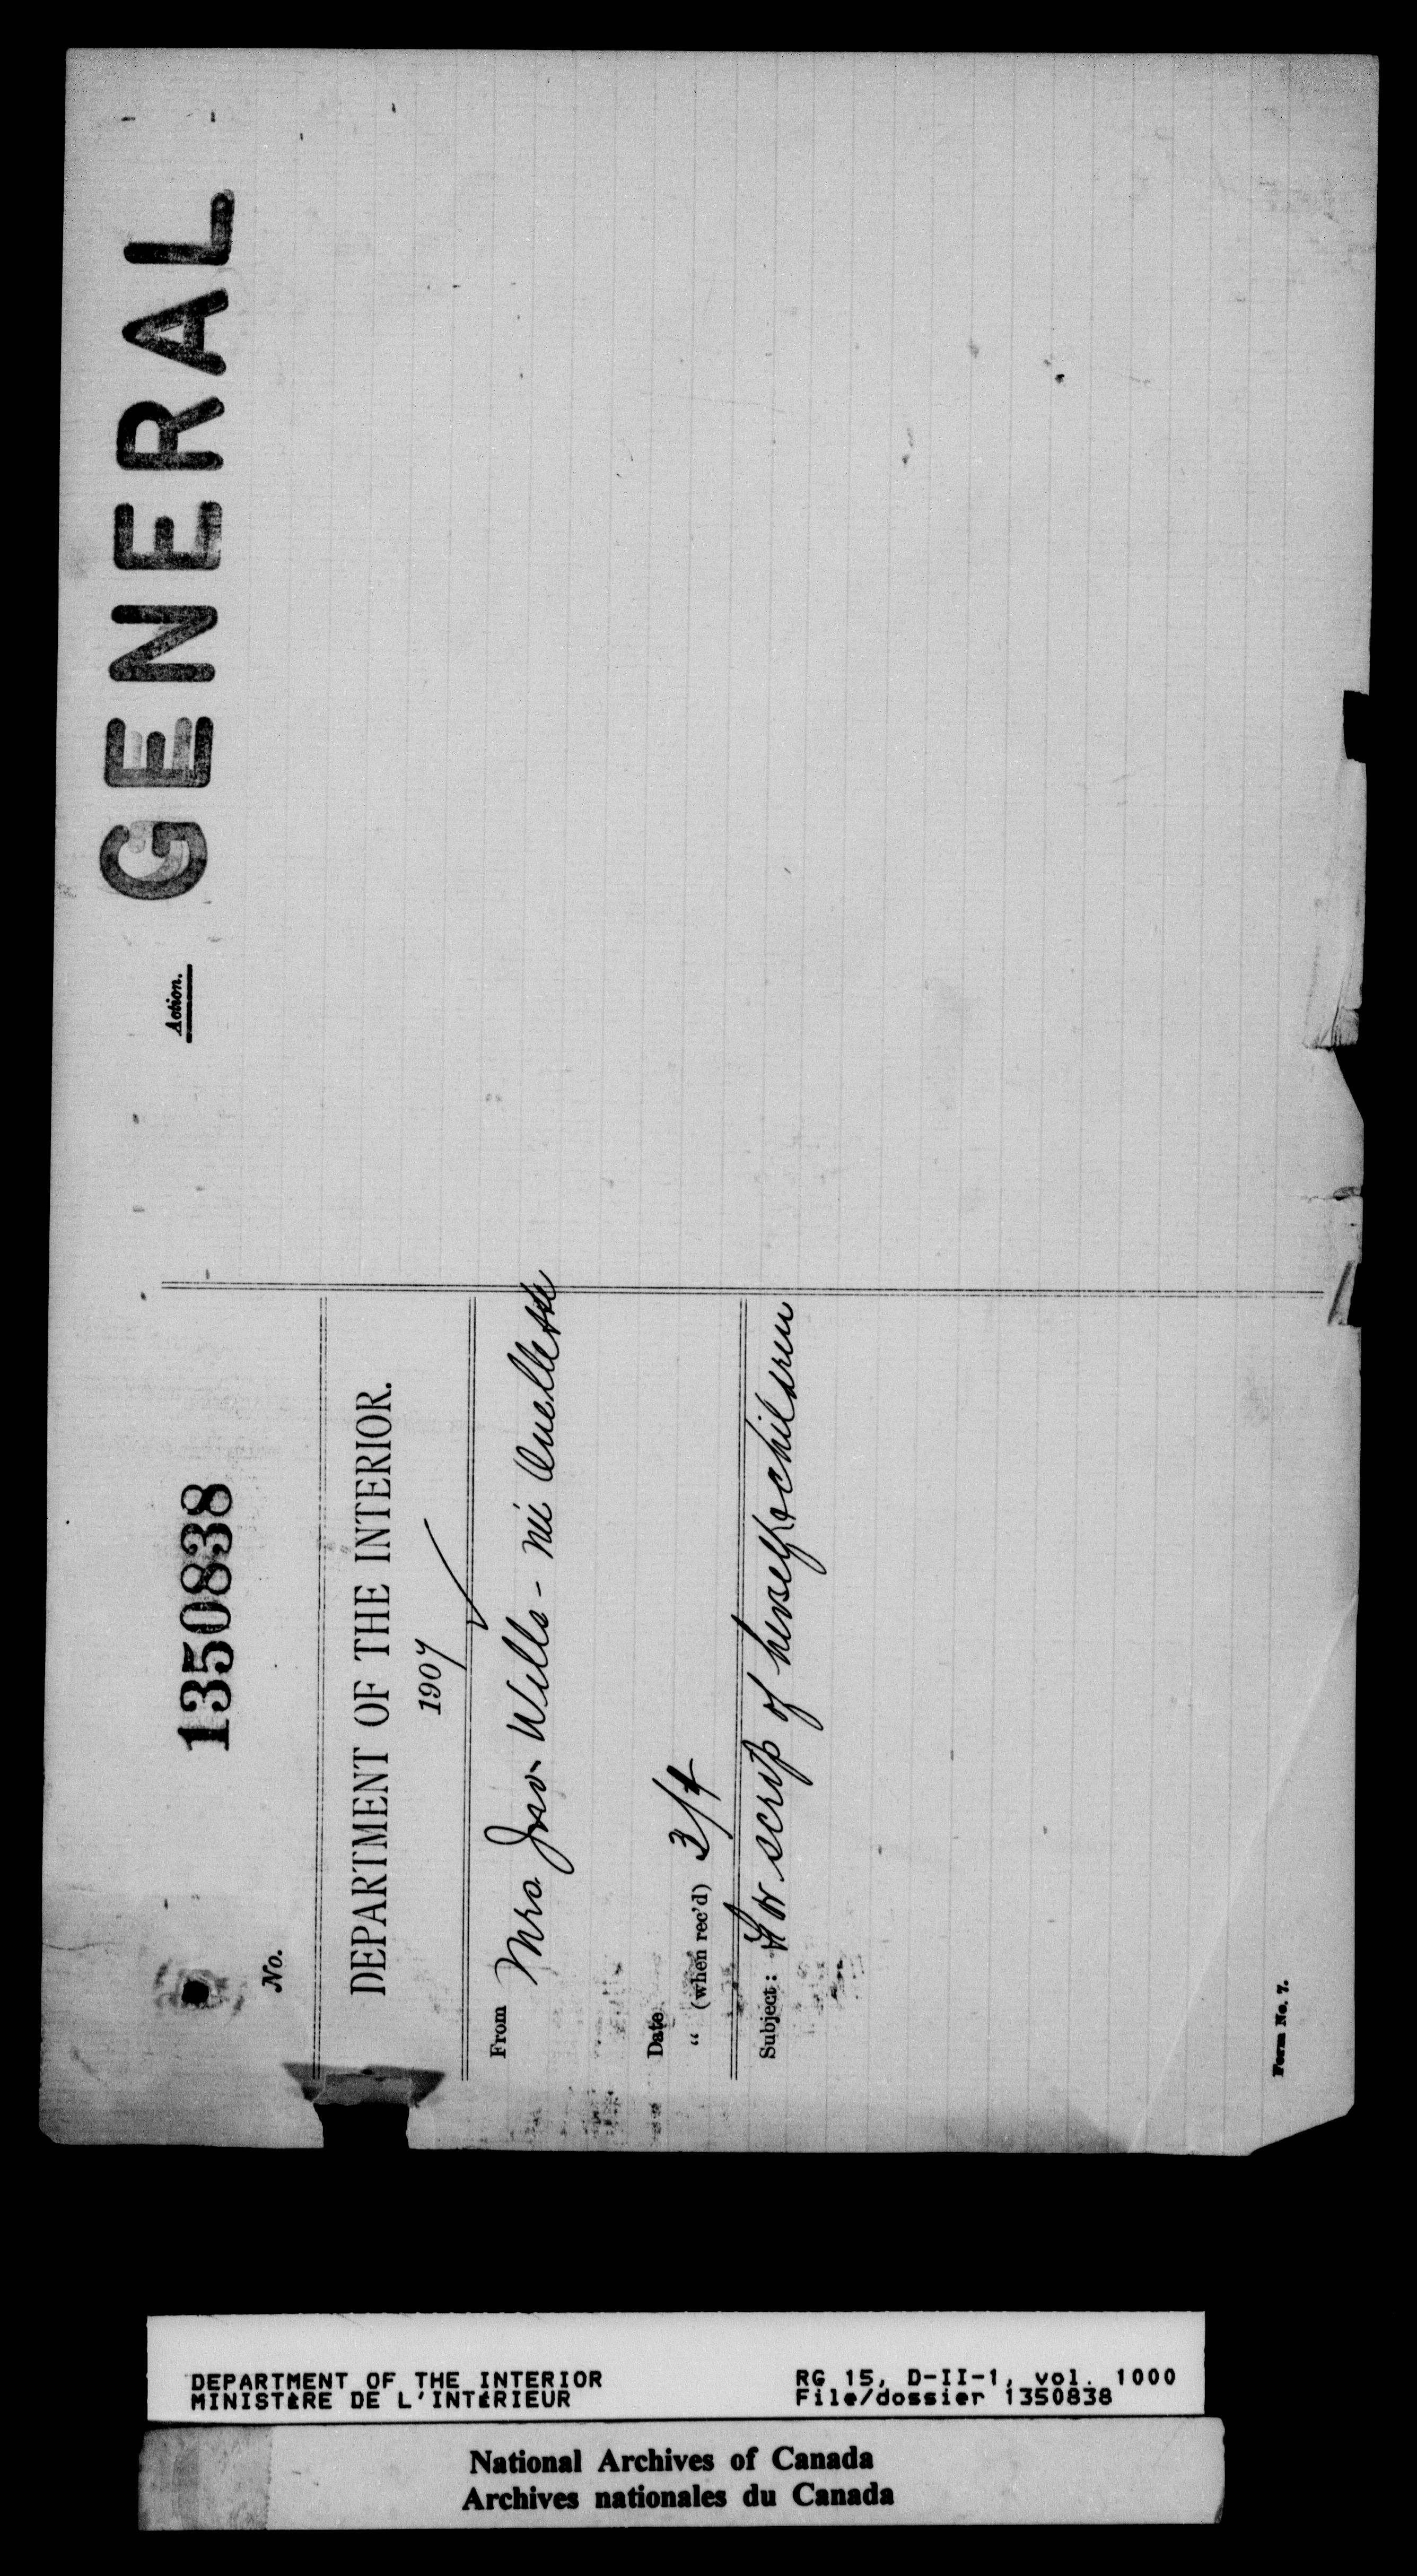 1350838
No.
DEPARTMENT OF THE INTERIOR.
1907
From Mrs Jno. Wells - née Ouellette
Date
“ (when rec'd) 3/4
Subject: For scrip of herself & children
Form No. 7.
Action.
GENERAL
DEPARTMENT OF THE INTERIOR
MINISTÈRE DE L'INTÉRIEUR
RG 15, D-II-1, vol. 1000
File/dossier 1350838
National Archives of Canada
Archives nationales du Canada